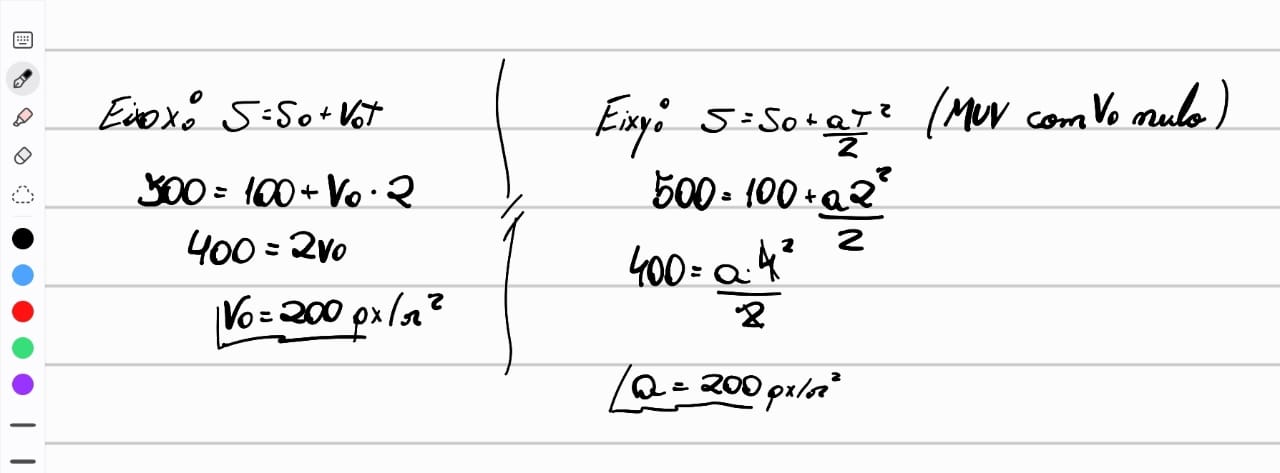 Eixo x: S=S₀+V₀T
500 = 100 + V₀ · 2
400 = 2v₀
V₀ = 200 px/s²
Eixy: S = S₀ + aT²/2 (MUV com V₀ nulo)
500 = 100 + a2²/2
400 = a·4²/2
a = 200 px/s²